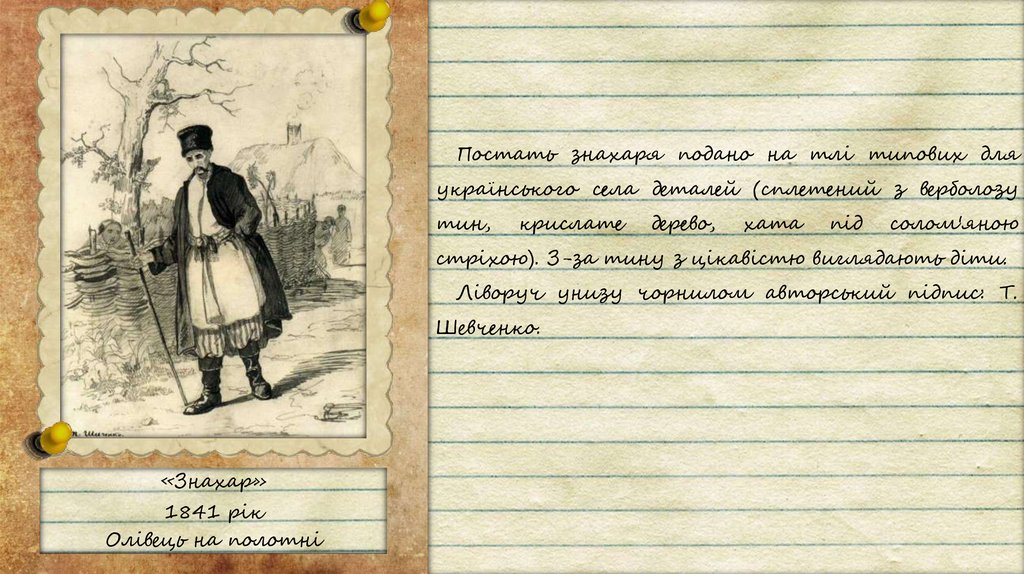 Т. Шевченко.
«Знахар»
1841 рік
Олівець на полотні
Постать знахаря подано на тлі типових для
українського села деталей (сплетений з верболозу
тин, крислате дерево, хата під солом'яною
стріхою). З-за тину з цікавістю виглядають діти.
Ліворуч унизу чорнилом авторський підпис: Т.
Шевченко.